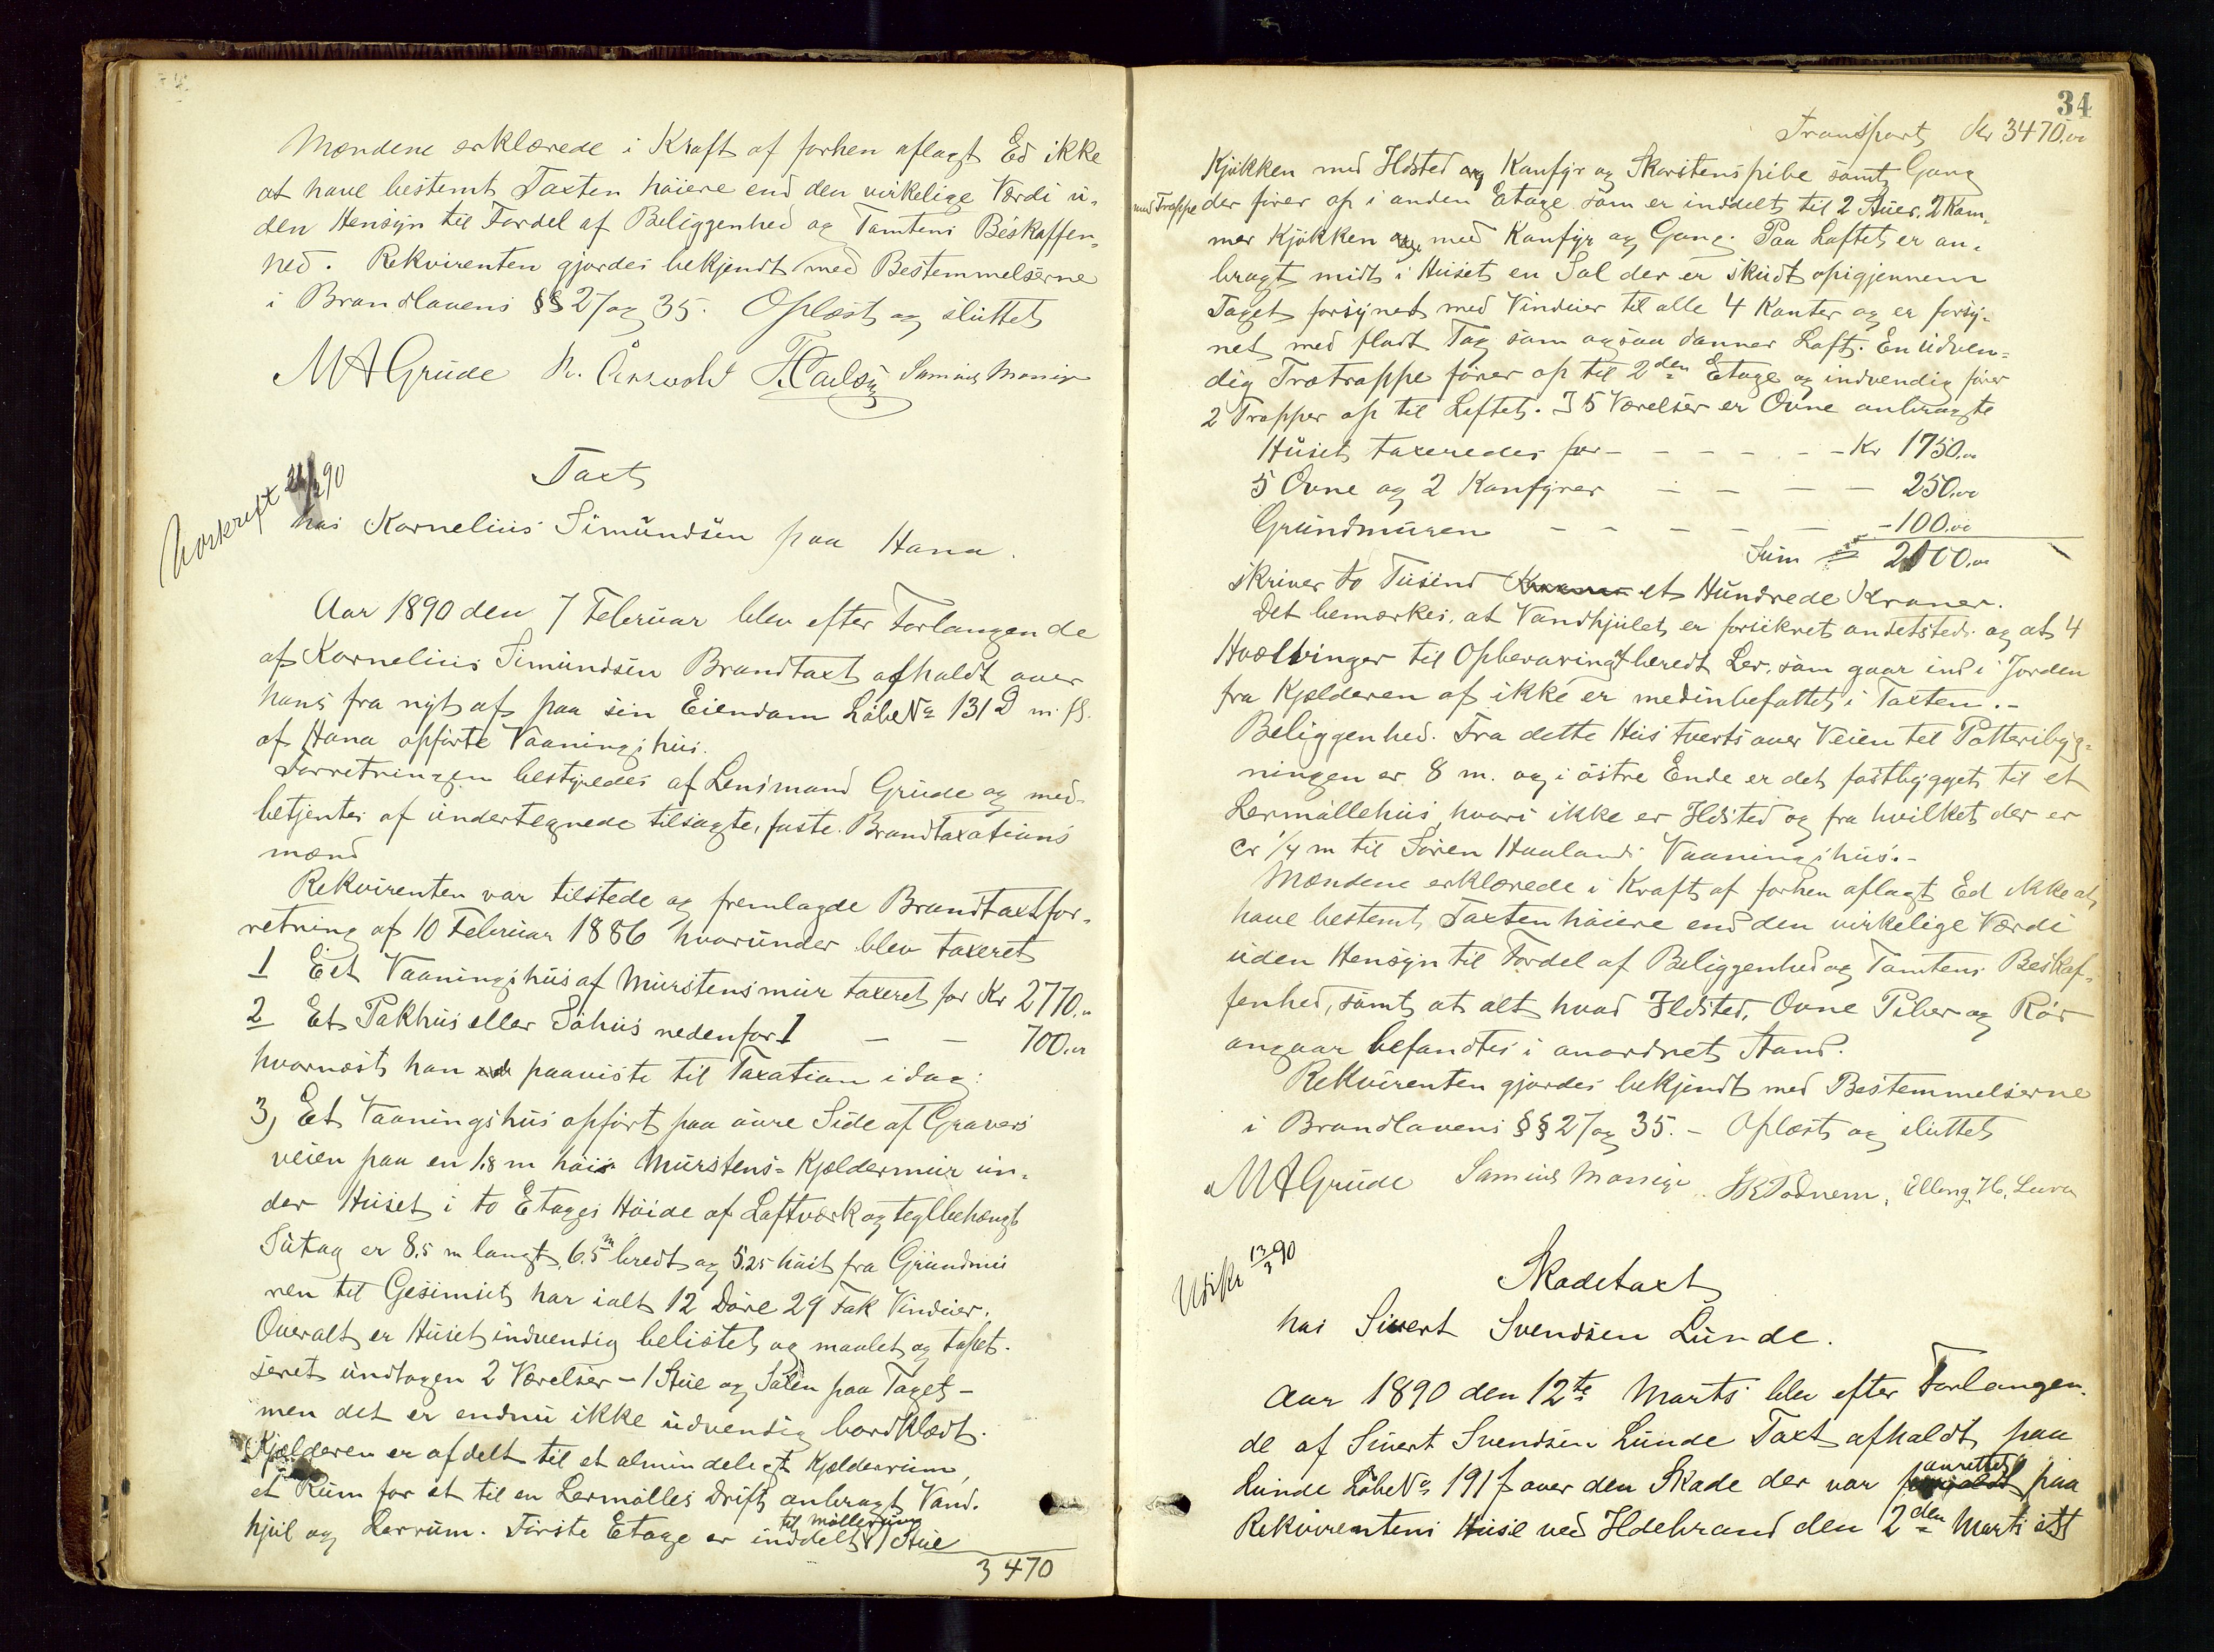 Mændene erklærede i Kraft af forhen aflagt Ed ikke
at have bestemt Taxten høiere end den virkelige Værdi u-
den Hensyn til Fordel af Beliggenhed og Tomtens Beskaffen-
hed. Rekvirenten gjordes bekjendt med Bestemmelserne
i Brandlovens §§ 27 og 35. Oplæst og sluttet
M A Grude
Taxt
hos Kornelius Simundsen paa Hana.
Aar 1890 den 7 Februar blev efter Forlangende
af Kornelius Simundsen Brandtaxt afholdt over
hans fra nyt af paa sin Eiendom Løbe No 131 d m. fl.
af Hana opførte Vaaningshus.
Forretningen bestyredes af Lensmand Grude og med-
betjentes af undertegnede tilsagte, faste Brandtaxations
mænd
Rekvirenten var tilstede og fremlagde Brandtaxtfor-
retning af 10 Februar 1886 hvorunder blev taxeret
1 Eet Vaaningshus af Murstensmur taxeret for Kr 2770.00
2 Et Pakhus eller Søhus nedenfor 1 — — 700.00
hvornæst han paaviste til Taxation idag:
3) Et Vaaningshus opført paa øvre Side af Gravers
veien paa en 1.8 m høi Murstens-Kjældermur un-
der Huset i to Etages Høide af Loftværk og teglbehængt
Sutag er 8.5 m langt, 6.5 m bredt og 5.25 høit fra Grundmu
ren til Gesimset, har ialt 12 Døre 29 Fak Vinduer.
Overalt er Huset indvendig belistet og maalet og tapet-
seret undtagen 2 Værelser – 1 Stue og Salen paa Taget –
men det er endnu ikke udvendig bordklædt.
Kjælderen er afdelt til et almindeligt Kjælderrum,
et Rum for et til en Lermølles Drift anbragt Vand-
hjul og Lerrum. Første Etage er inddelt til Møllerum 1 Stue
3470
34
Transport Kr 3470.00
Kjøkken med Ildsted og Komfyr og Skorstenspibe samt Gang
med Trappe der fører op i anden Etage som er inddelt til 2 Stuer, 2 Kam-
mer Kjøkken med Komfyr og Gang. Paa Loftet er an-
bragt midt i Huset en Sal der er skudt opigjennem
Taget forsynet med Vinduer til alle 4 Kanter og er forsy-
net med fladt Tag som ogsaa danner Loft. En udven-
dig Trætrappe fører op til 2den Etage og indvendig fører
2 Trapper op til Loftet. I 5 Værelser er Ovne anbragte
Huset taxeredes for – – – – – Kr 1750.00
5 Ovne og 2 Komfyrer – – – – 250.00
Grundmuren – – – – – – 100.00
Sum = 2100.00
skriver to Tusind et Hundrede Kroner.
Det bemærkes, at Vandhjulet er forsikret andetsteds og at 4
Hvælvinger til Opbevaring af beredt Ler, som gaar ind i Jorden
fra Kjælderen af ikke er medinbefattet i Taxten.–
Beliggenhed. Fra dette Hus tverts over Veien til Potteribyg-
ningen er 8 m. og i østre Ende er det fastbygget til et
Lermøllehus, hvori ikke er Ildsted og fra hvilket der er
cr 1/4 m til Søren Haalands Vaaningshus.–
Mændene erklærede i Kraft af forhen aflagt Ed ikke at
have bestemt Taxten høiere end den virkelige Værdi
uden Hensyn til Fordel af Beliggenhed og Tomtens Beskaf-
fenhed, samt at alt hvad Ildsted, Ovne Piber og Rør
angaar befandtes i anordnet Stand.
Rekvirenten gjordes bekjendt med Bestemmelserne
i Brandlovens §§ 27 og 35. – Oplæst og sluttet
M A Grude
Udskr 13/3 90
Skadetaxt
hos Sivert Svendsen Lunde.
Aar 1890 den 12te Marts blev efter Forlangen-
de af Sivert Svendsen Lunde Taxt afholdt paa
Lunde Løbe No 191 f over den Skade der var anrettet paa
Rekvirentens Huse ved Ildebrand den 2den Marts sidst